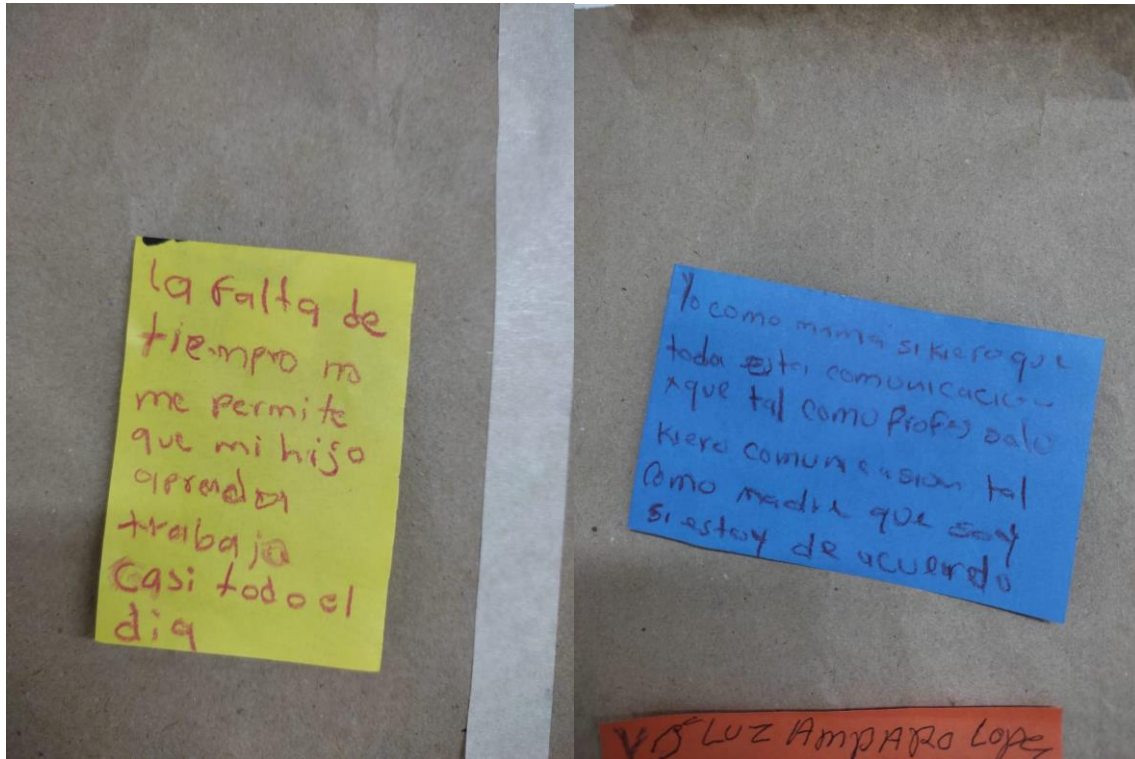 la falta de
tiempro no
me permite
que mi hijo
aprendan
trabajo
casi todo el
dia
Yo como mama si kiero que
toda esta comunicacion
xque tal como profes
kiero comunicasion tal
como madre que soy
si estoy de acuerdo
LUZ AmpARo Lope